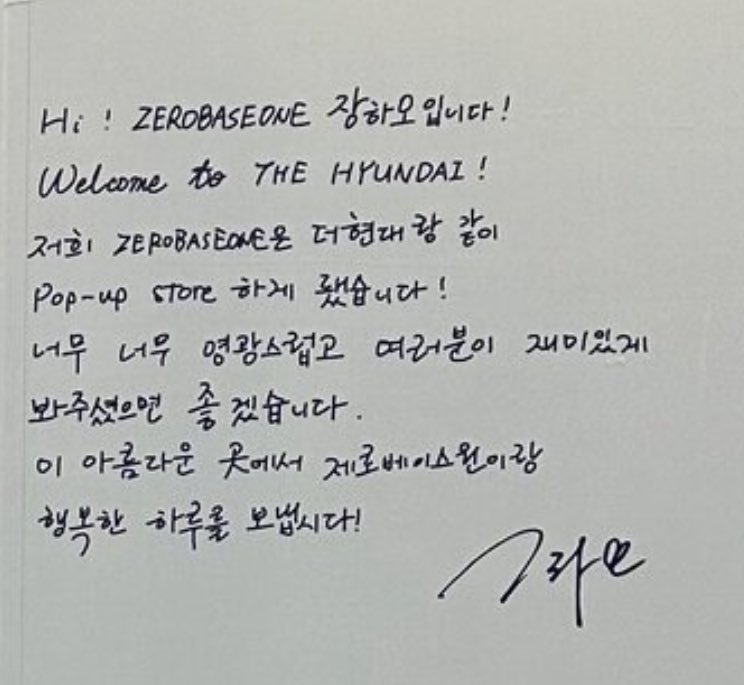 Hi ! ZEROBASEONE 장하오입니다!
Welcome to THE HYUNDAI !
저희 ZEROBASEONE은 더현대랑 같이
Pop-up store 하게 됐습니다!
너무 너무 영광스럽고 여러분이 재미있게
봐주셨으면 좋겠습니다.
이 아름다운 곳에서 제로베이스원이랑
행복한 하루를 보냅시다!